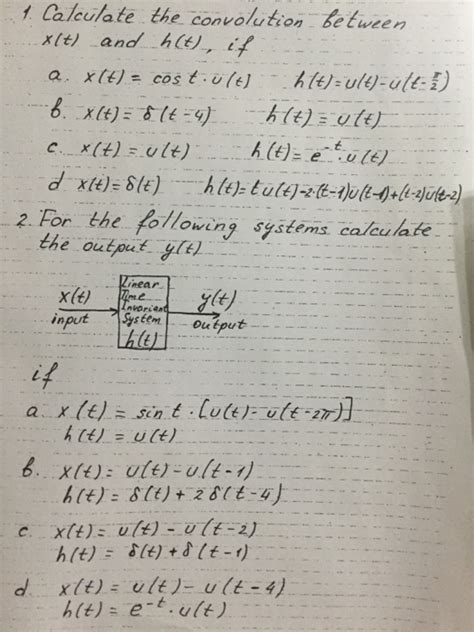 1. Calculate the convolution between
x(t) and h(t), if
a. x(t) = cos t · u(t) h(t)=u(t)-u(t-π/2)
b. x(t)= δ(t-4) h(t)= u(t)
c. x(t)= u(t) h(t)= e^-t · u(t)
d x(t)= δ(t) h(t)= t u(t)-2·(t-1)u(t-1)+(t-2)u(t-2)
2. For the following systems calculate
the output y(t)
x(t)
input
Linear
Time
Invariant
System
h(t)
y(t)
output
if
a. x(t) = sin t · [u(t)-u(t-2π)]
h(t) = u(t)
b. x(t)= u(t)-u(t-1)
h(t)= δ(t)+2δ(t-4)
c. x(t)= u(t) - u(t-2)
h(t) = δ(t)+δ(t-1)
d. x(t)= u(t)-u(t-4)
h(t)= e^-t · u(t)